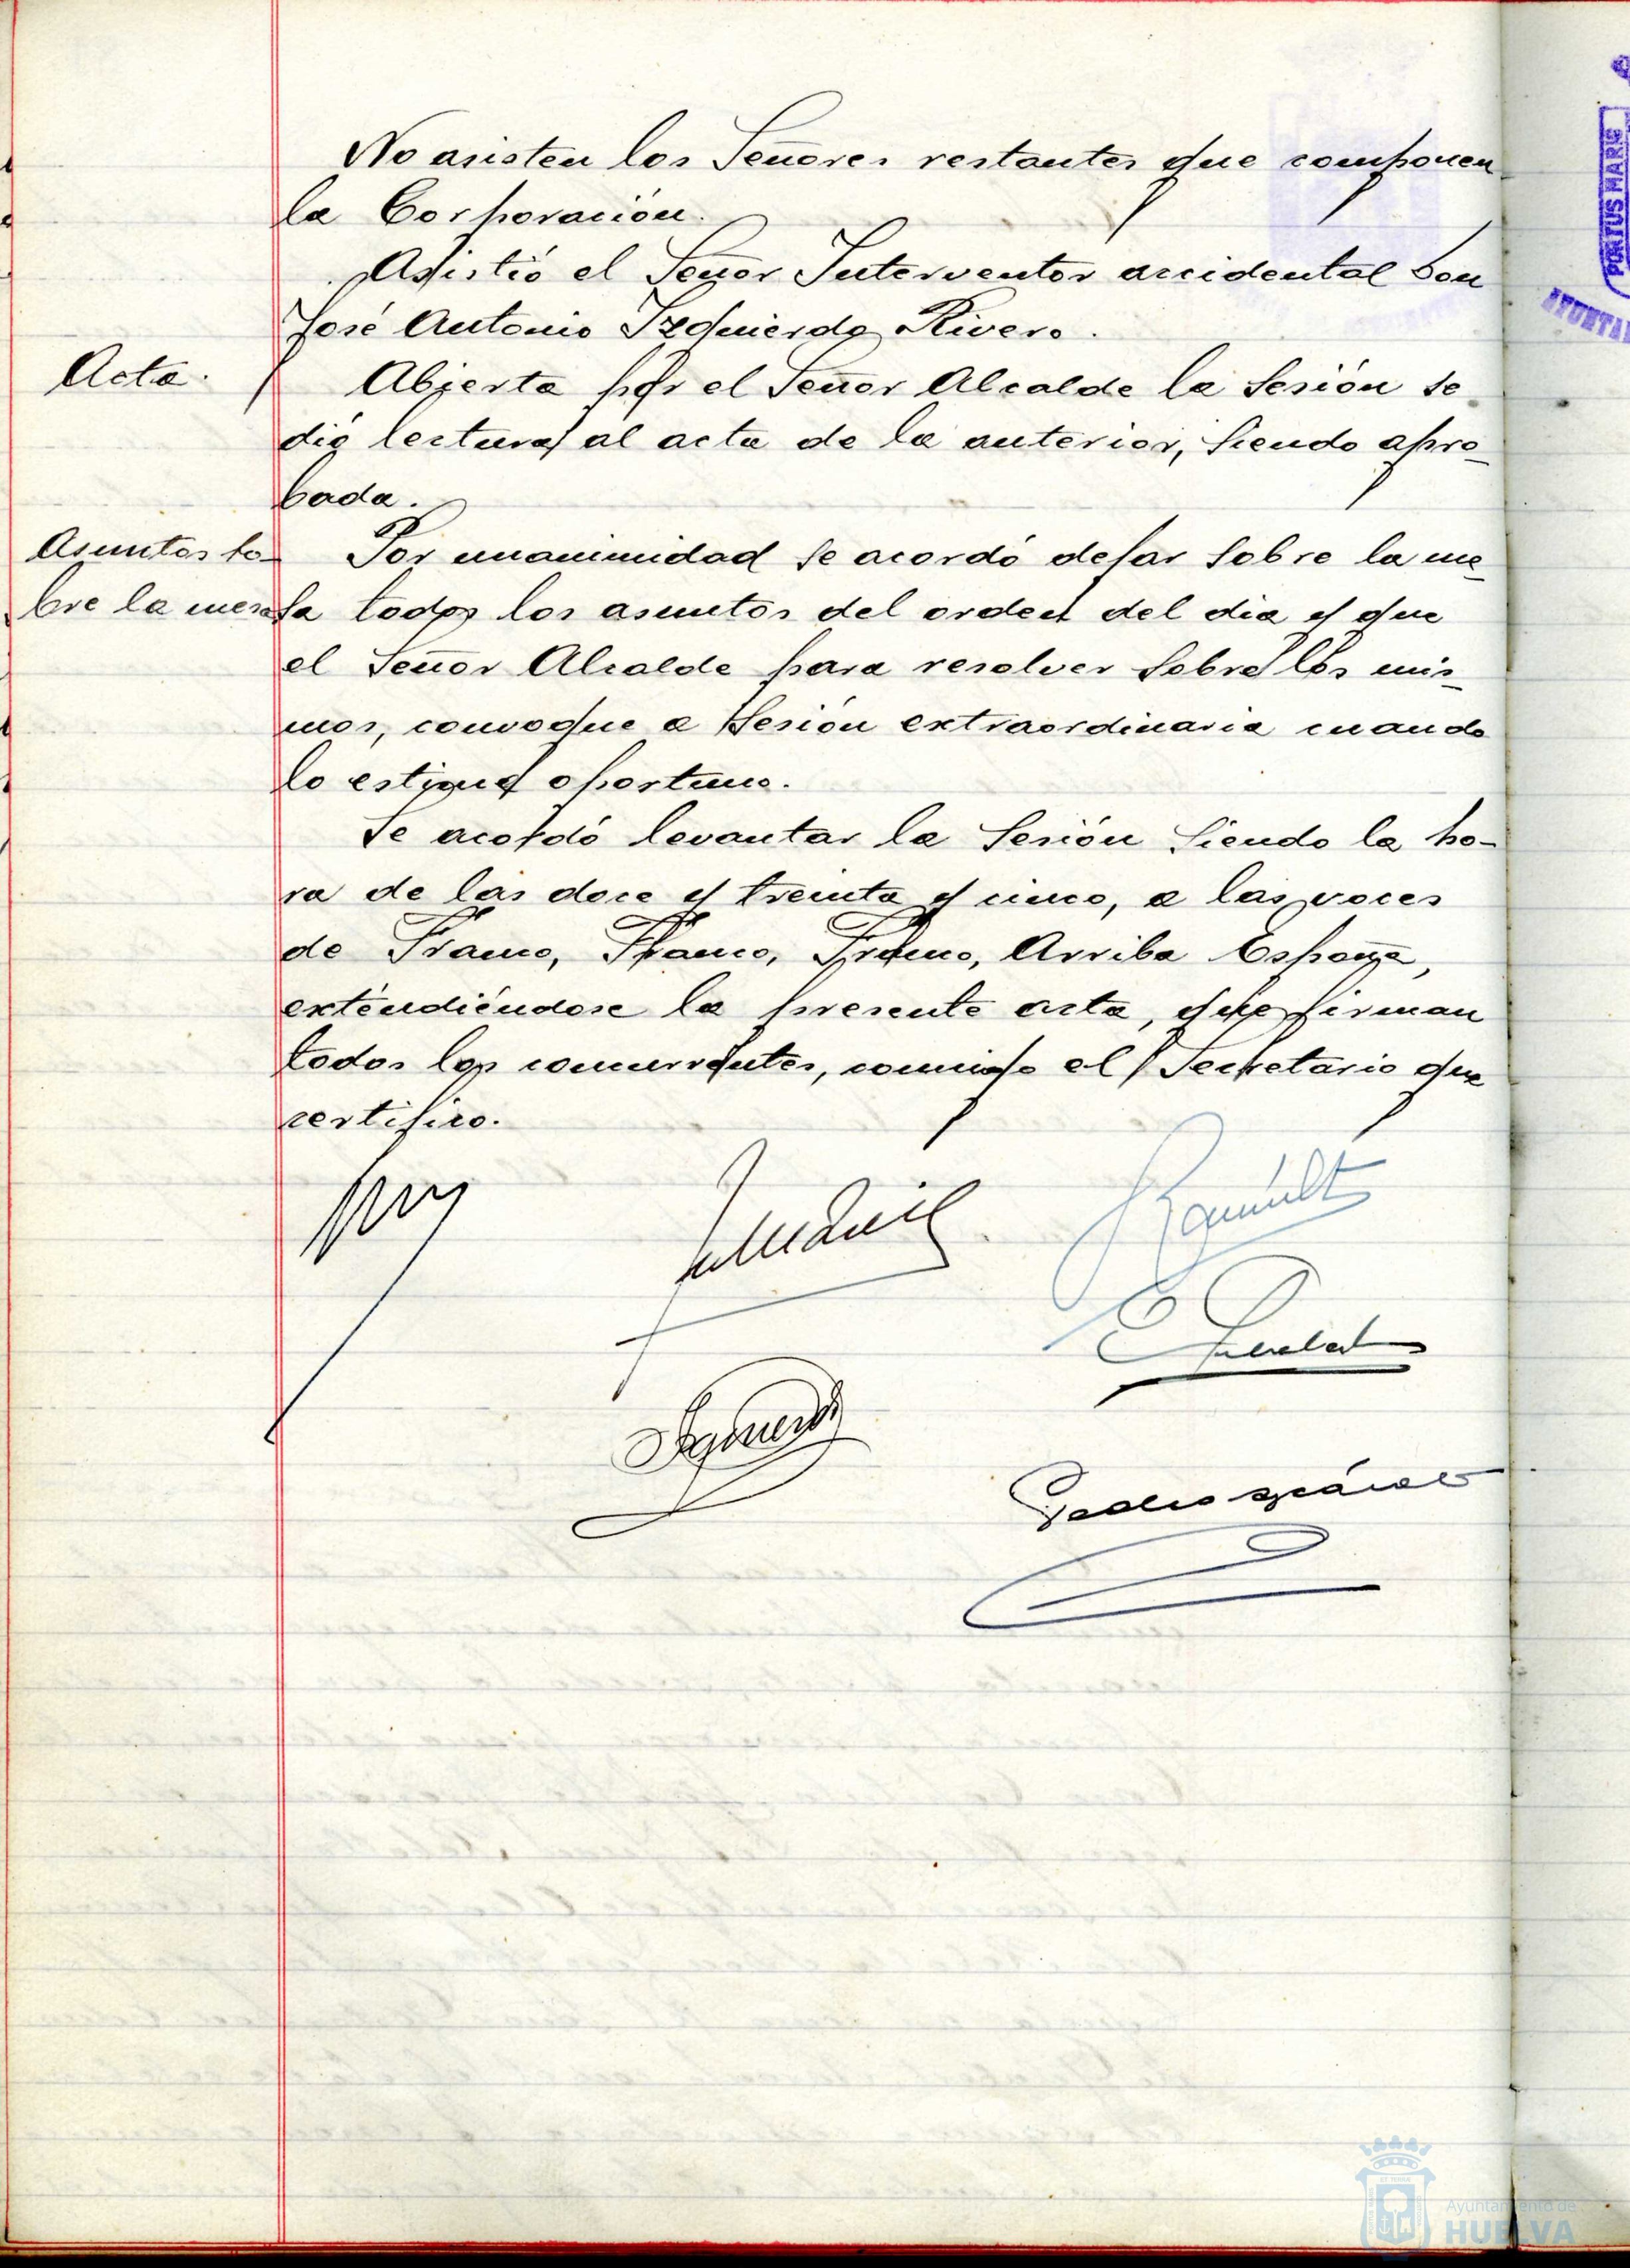 No asisten los Señores restantes que componen
la Corporación.
Asistió el Señor Interventor accidental Don
José Antonio Izquierdo Rivero.
Acta.
Abierta por el Señor Alcalde la Sesión se
dió lectura al acta de la anterior, siendo apro-
bada.
Asuntos so-
bre la mesa
Por unanimidad se acordó dejar sobre la me-
sa todos los asuntos del orden del dia y que
el Señor Alcalde para resolver sobre los mis-
mos, convoque a sesión extraordinaria cuando
lo estique oportuno.
Se acordó levantar la Sesión siendo la ho-
ra de las doce y treinta y cinco, a las voces
de Franco, Franco, Franco, Arriba España,
extendiéndose la presente acta, que firman
todos los concurrentes, conmigo el Secretario que
certifico.
PORTUS MARIS
AYUNTA
Ayuntamiento de
HUELVA